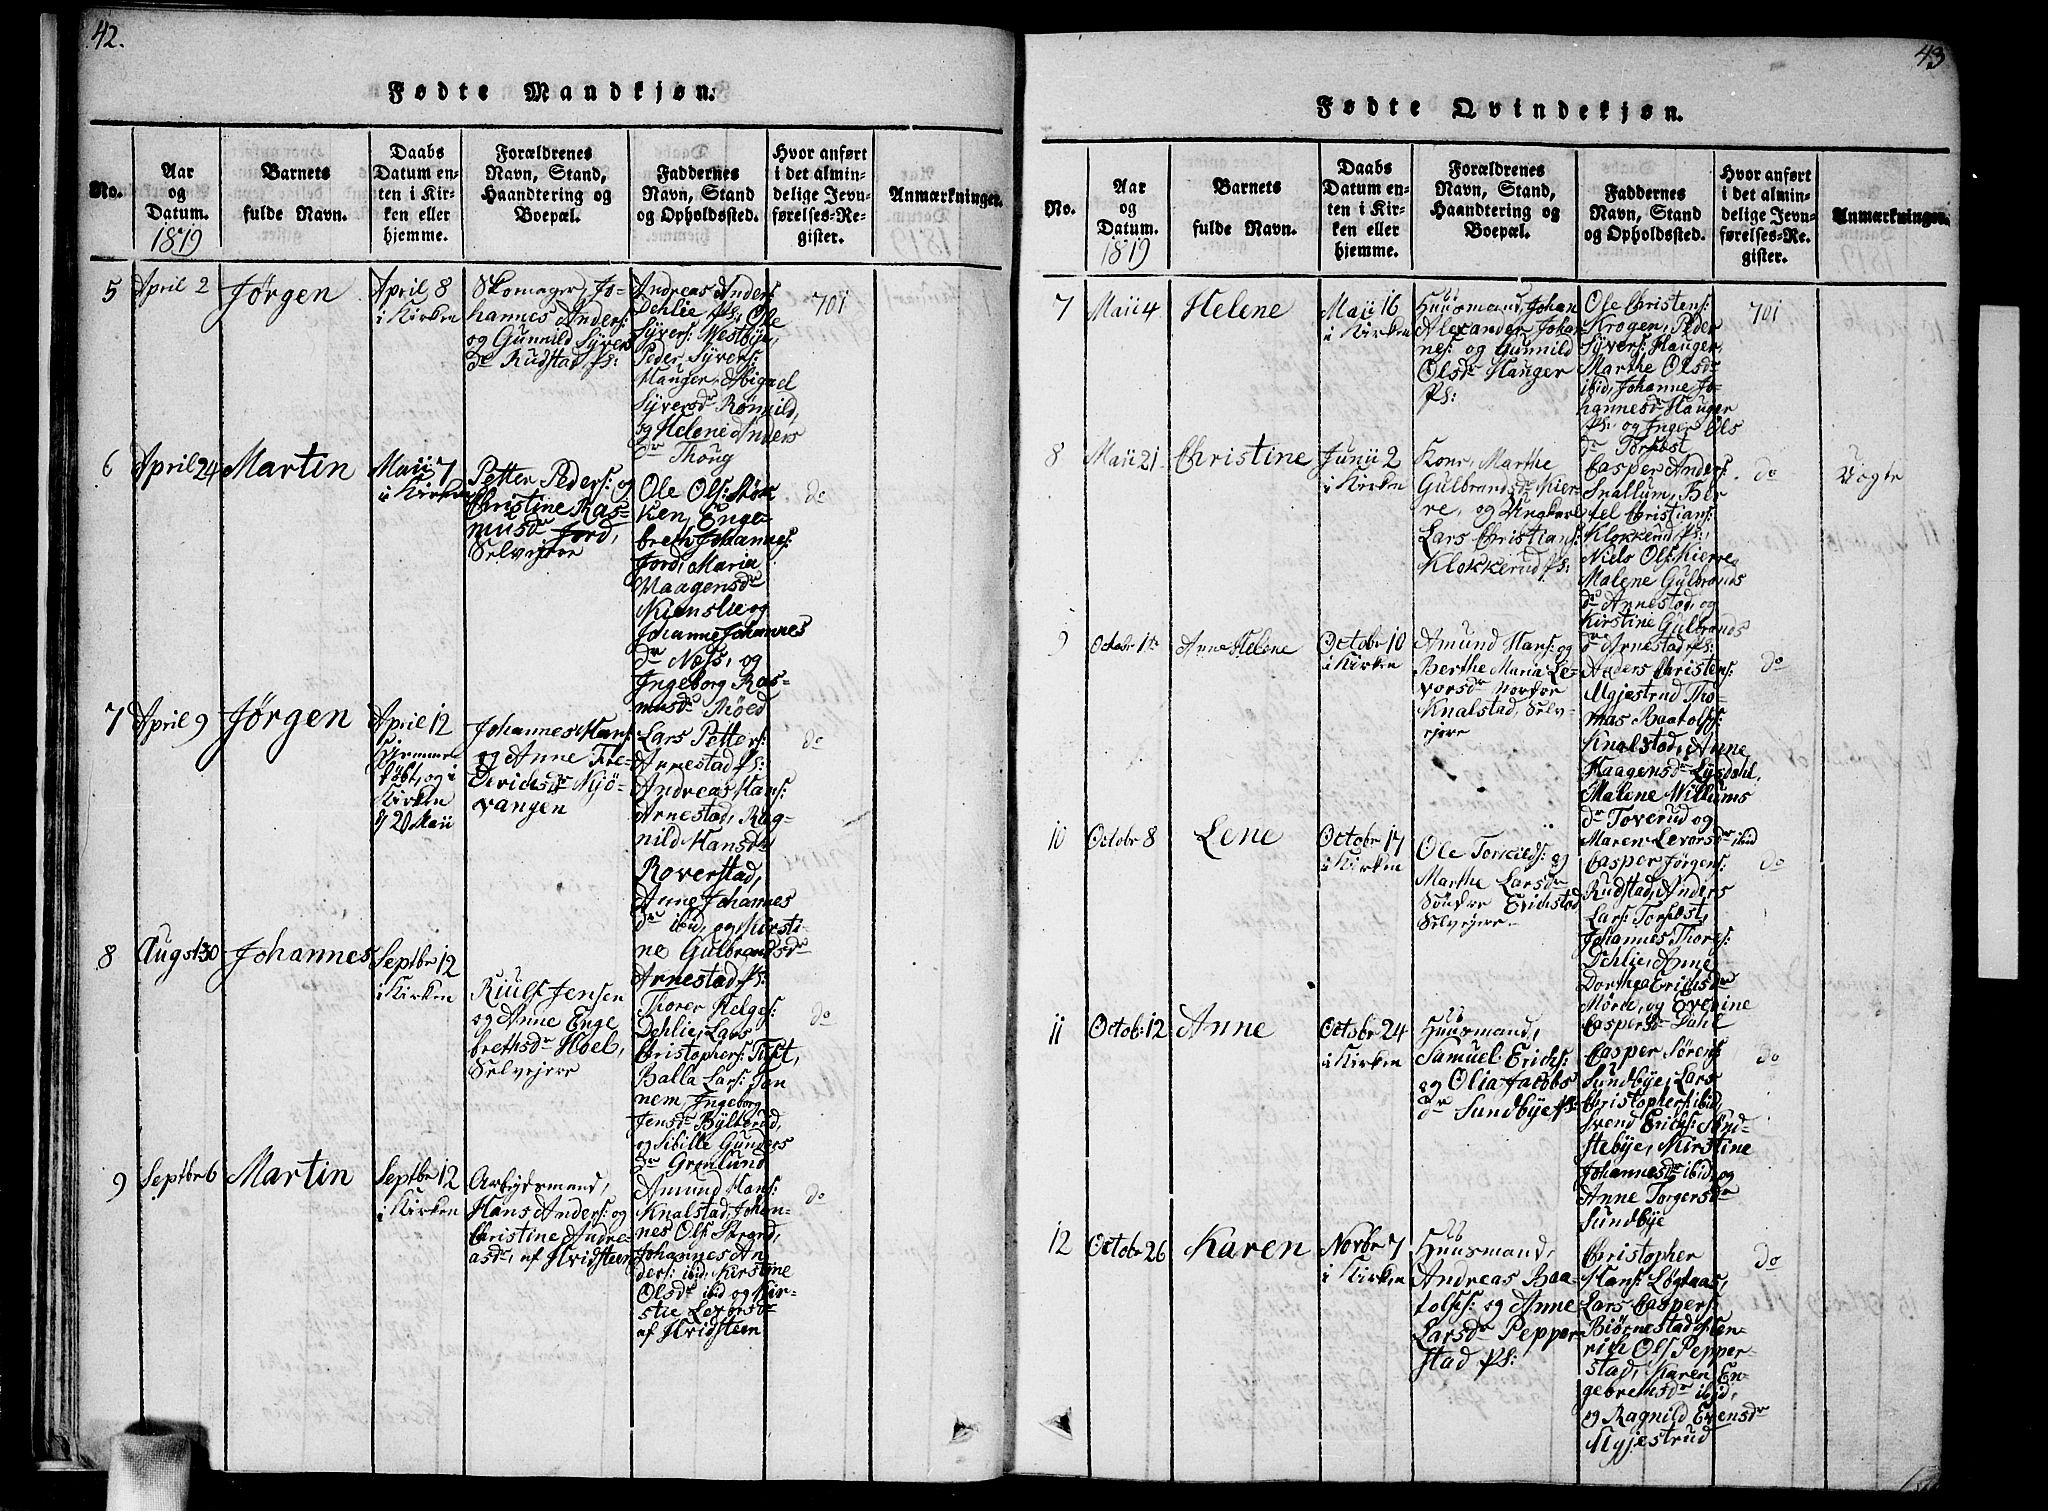 42.
Fødte Mandkjøn.
No.
Aar
og
Datum.
1819
Barnets
fulde Navn.
Daabs
Datum en-
ten i Kir-
ken eller
hjemme.
Forældrenes
Navn, Stand,
Haandtering og
Boepæl.
Faddernes
Navn, Stand
og Opholdssted.
Hvor anført
i det almin-
delige Jevn-
førelses-Re-
gister.
Anmærkninger.
5
April 2
Jørgen
April 8
i Kirken
Skomager, Jo-
hannes Anders:
og Gunnild Syvers
dr Rudstad, Ps:
Andreas Anders:
Dehlie Ps: Ole
Syvers: Westbye,
Peder Syvers:
Hauger, Abigael
Syversdr Römild,
og Helene Anders
dr Thoug
701
6
April 24
Martin
Maii 7
i Kirken
Petter Peders: og
Christine Ras-
musdr Jord,
Selvejere
Ole Ols:
ken, Enge-
bret Johannes:
Jord, Maria
Haagensdr
Kienslie og
Johanne Johannes
dr Næss, og
Ingeborg Ras-
musdr
do
7
April 9
Jørgen
April 12
hjemme
døbt, og i
Kirken
20 Maii
Johannes Hans:
og Anne Fre-
drichsdr Kjö-
vangen
Lars Petters:
Arnestad Ps:
Andreas Hans:
Arnestad, Rag-
nild Hansdr
Roverstad,
Anne Johannes
dr ibid, og Kirsti-
ne Gulbrandsdr
Arnestad Ps:
do
8
Augst 30
Johannes
Septbr 12
i Kirken
Riulf Jensen
og Anne Enge
brethsdr Hoel,
Selvejere
Thorer Helges:
Dehlie, Lars
Christophers: Tuft,
Balla Lars: Jan
nem, Ingeborg
Jensdr Bylterud,
og Sibille Gunders
dr Grønlund
do
9
Septbr 6
Martin
Septbr 12
i Kirken
Arbejdsmand,
Hans Anders: og
Christine Andre-
asdr, af Hvidsteen
Amund Hans:
Knalstad, Johan-
nes Ols: Strand,
Johannes An
ders: ibid, Kirstine
Olsdr ibid og Kir-
stie Levorsdr
af Hvidsteen
do
43
Fødte Qvindekjøn.
No.
Aar
og
Datum.
1819
Barnets
fulde Navn.
Daabs
Datum en-
ten i Kir-
ken eller
hjemme.
Forældrenes
Navn, Stand,
Haandtering og
Boepæl.
Faddernes
Navn, Stand
og Opholdssted.
Hvor anført
i det almin-
delige Jevn-
førelses-Re-
gister.
Anmærkninger.
7
Maii 4
Helene
Maii 16
i Kirken
Huusmand, Johan
Alexander Johan
nes: og Gunnild
Olsdr Hauger
Ps:
Ole Christens:
Krogen, Peder
Syvers: Hauger
Marthe Olsdr
ibid, Johanne Jo-
hannesdr Hauger
Ps: og Inger Ols
dr Torsbst
701
8
Maii 21
Christine
Junii 2
i Kirken
Kone, Marthe
Gulbrandsdr Kier-
re, og Ungkarl
Lars Christians:
Klokkerud Ps:
Casper Anders:
Snallum, Ber
tel Christians:
Klokkerud Ps:,
Niels Ols: Kierre,
Malene Gulbrands
dr Arnestad, og
Kirstine Gulbrands
dr Arnestad Ps:
do
Uægte
9
October 1te
Anne Helene
October 10
i Kirken
Amund Hans: og
Berthe Maria Le-
vorsdr nordre
Knalstad, Selv-
ejere
Anders Christens:
Mgjestrud, Tho-
mas Baatolfs:
Knalstad, Anne
Haagensdr Lysdahl,
Malene Willums
dr Toverud og
Maren Levorsdr ibid
do
10
Octobr 8
Lene
Octobr 17
i Kirken
Ole Torkilds: og
Marthe Larsdr
Söndre Erichstad
Selvejere
Casper Jørgens:
Rudstad, Anders
Lars: Torsbst,
Johannes Thores:
Dehlie, Anne
Dorthea Erichsdr
Mörch, og Everine
Caspersdr Dahl
do
11
Octob: 12
Anne
Octobr 24
i Kirken
Huusmand,
Samuel Erichs:
og Olia Jacobs
dr Sundbye Ps:
Casper Sörens:
Sundbye, Lars
Christophers: ibid,
Svend Erichs: Sund-
stebye, Kirstine
Johannesdr ibid, og
Anne Torgersdr
Sundbye
do
12
Octobr 26
Karen
Novbr 7
i Kirken
Huusmand,
Andreas Baa-
tolfs: og Anne
Larsdr Pepper-
stad Ps:
Christopher
Hans: Løgtaas,
Lars Caspers:
Biørnestad, Hen-
rich Ols: Pepper-
stad, Karen En-
gebretsdr ibid,
og Ragnild Evensdr
Mgjestrud
do